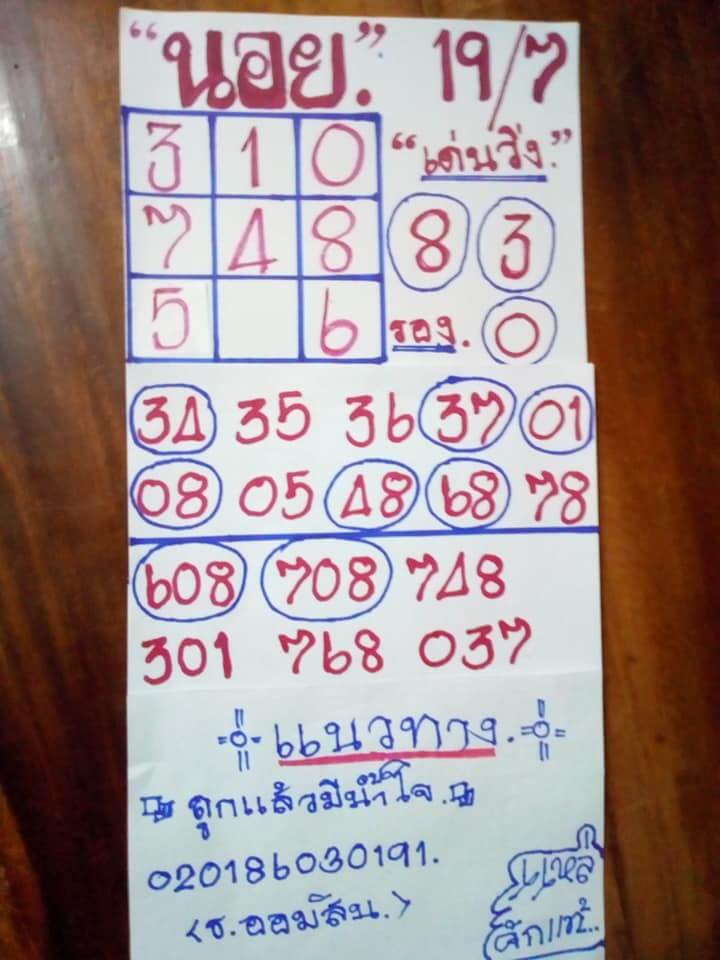 "นอย." 19/7
3 1 0
"เด่นวิ่ง."
7 4 8
8 3
5 6
รอง. 0
34 35 36 37 01
08 05 48 68 78
608 708 748
301 768 037
แนวทาง.
ถูกแล้วมีน้ำใจ.
020186030191.
<ธ.ออมสิน.>